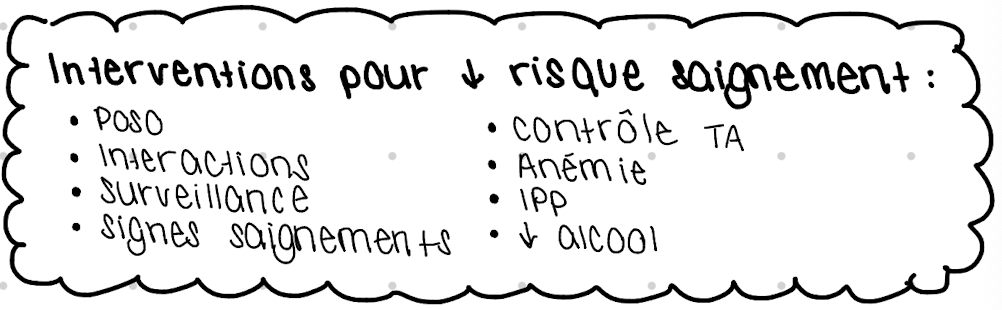 Interventions pour ↓ risque saignement :
• Poso
• Interactions
• surveillance
• signes saignements
• contrôle TA
• Anémie
• IPP
• ↓ alcool